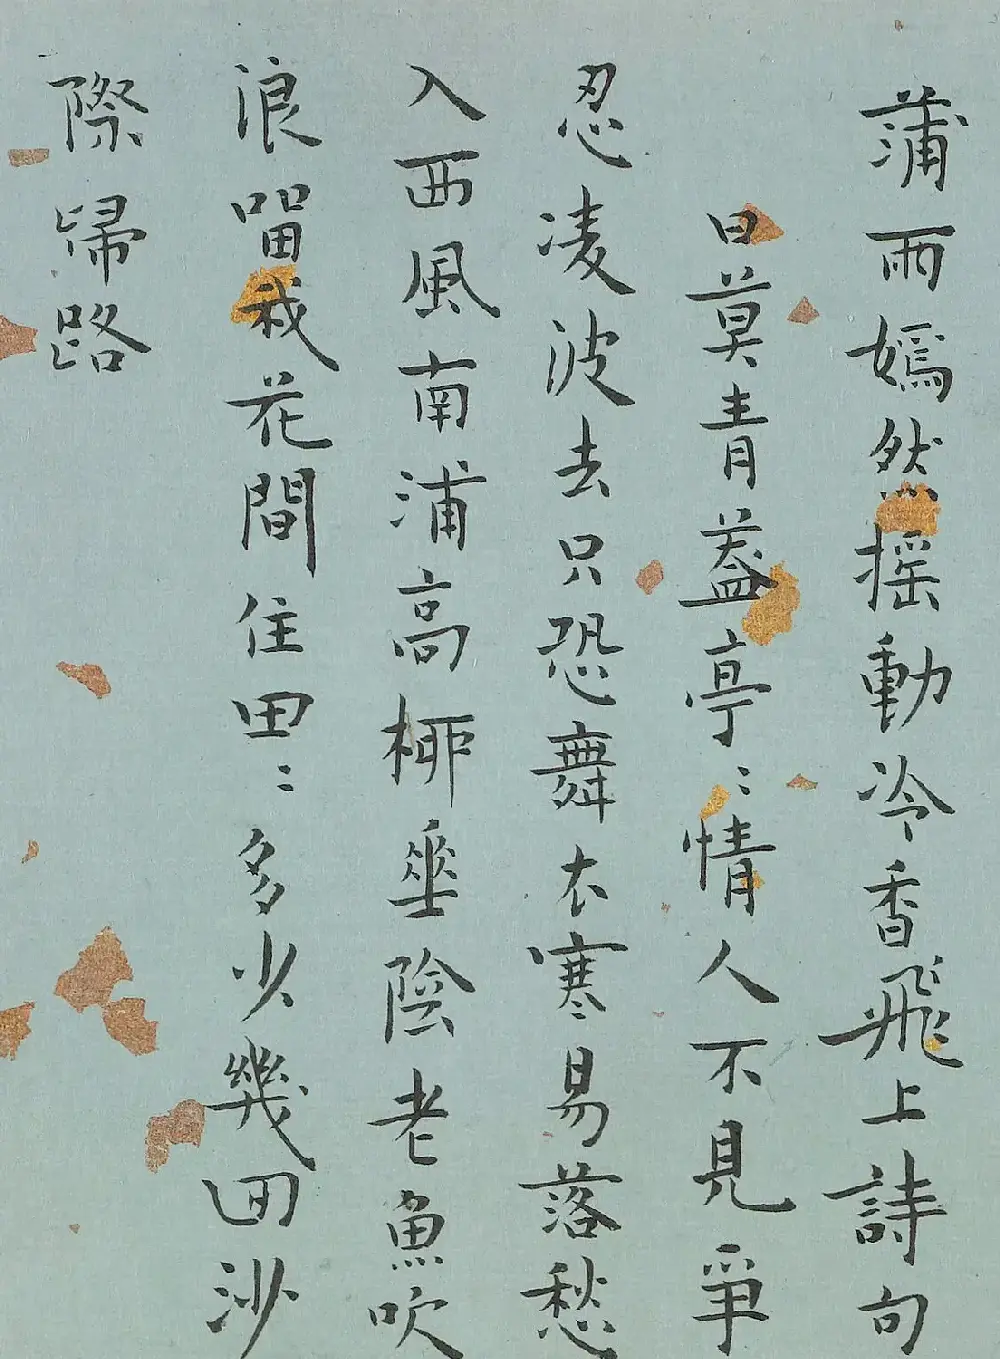 蒲雨嫣然摇動冷香飛上詩句
日莫青葢亭〻情人不見爭
忍凌波去只恐舞衣寒易落愁
入西風南浦高桺垂陰老魚吹
浪畱我花間住田〻多少幾囬沙
際帰路